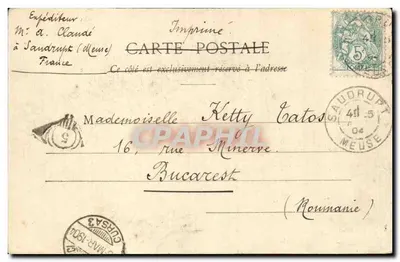 Expéditeur
Mr A. Claudé
à Saudrupt (Meuse)
France
Imprimé
CARTE POSTALE
Ce côté est exclusivement réservé à l'adresse
5
SAUDRUPT
04
MEUSE
Mademoiselle Ketty Tatos
16, rue Minerve
Bucarest
(Roumanie)
5
MAR 1904
CURSA 3
CPAPHIL